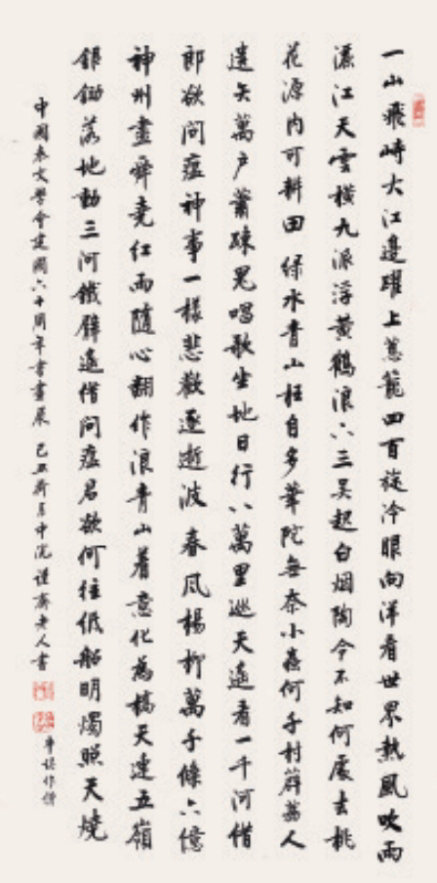 一山飛峙大江邊躍上蔥籠四百旋冷眼向洋看世界熱風吹雨
灑江天雲橫九派浮黃鶴浪下三吳起白烟陶令不知何處去桃
花源內可耕田 綠水青山枉自多華陀無奈小蟲何千村薜荔人
遺矢萬戶蕭疎鬼唱歌坐地日行八萬里巡天遙看一千河借
郎欲問瘟神事一樣悲歡逐逝波 春風楊柳萬千條六億
神州盡舜堯紅雨隨心翻作浪青山着意化為橋天連五嶺
銀鋤落地動三河鐵臂遙借問瘟君欲何往紙船明燭照天燒
中國文學會建國六十周年書畫展 己丑中浣 謹齋老人書
牽誤作借